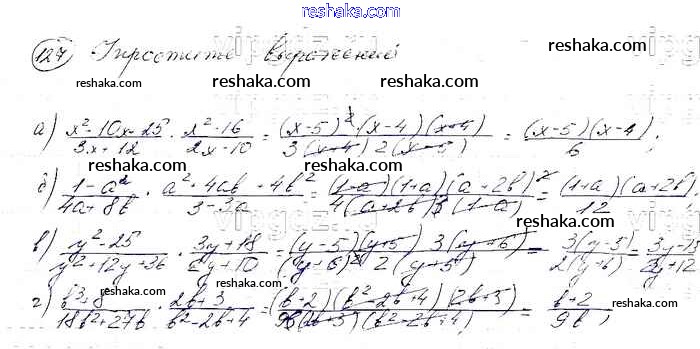 reshaka.com
127 Упростить выражений
reshaka.com reshaka.com reshaka.com
а) (x²-10x+25)/(3x+12) · (x²-16)/(2x-10) = ((x-5)²(x-4)(x+4))/(3(x+4)2(x-5)) = ((x-5)(x-4))/6;
reshaka.com reshaka.com reshaka.com
б) (1-a²)/(4a+8b) · (a²+4ab+4b²)/(3-3a) = ((1-a)(1+a)(a+2b)²)/(4(a+2b)3(1-a)) = ((1+a)(a+2b))/12;
reshaka.com reshaka.com reshaka.com
в) (y²-25)/(y²+12y+36) · (3y+18)/(2y+10) = ((y-5)(y+5)3(y+6))/((y+6)²2(y+5)) = (3(y-5))/(2(y+6)) = (3y-15)/(2y+12)
reshaka.com reshaka.com
г) (b³+8)/(18b²+27b) · (2b+3)/(b²-2b+4) = ((b+2)(b²-2b+4)(2b+3))/(9b(2b+3)(b²-2b+4)) = (b+2)/(9b);
reshaka.com reshaka.com reshaka.com